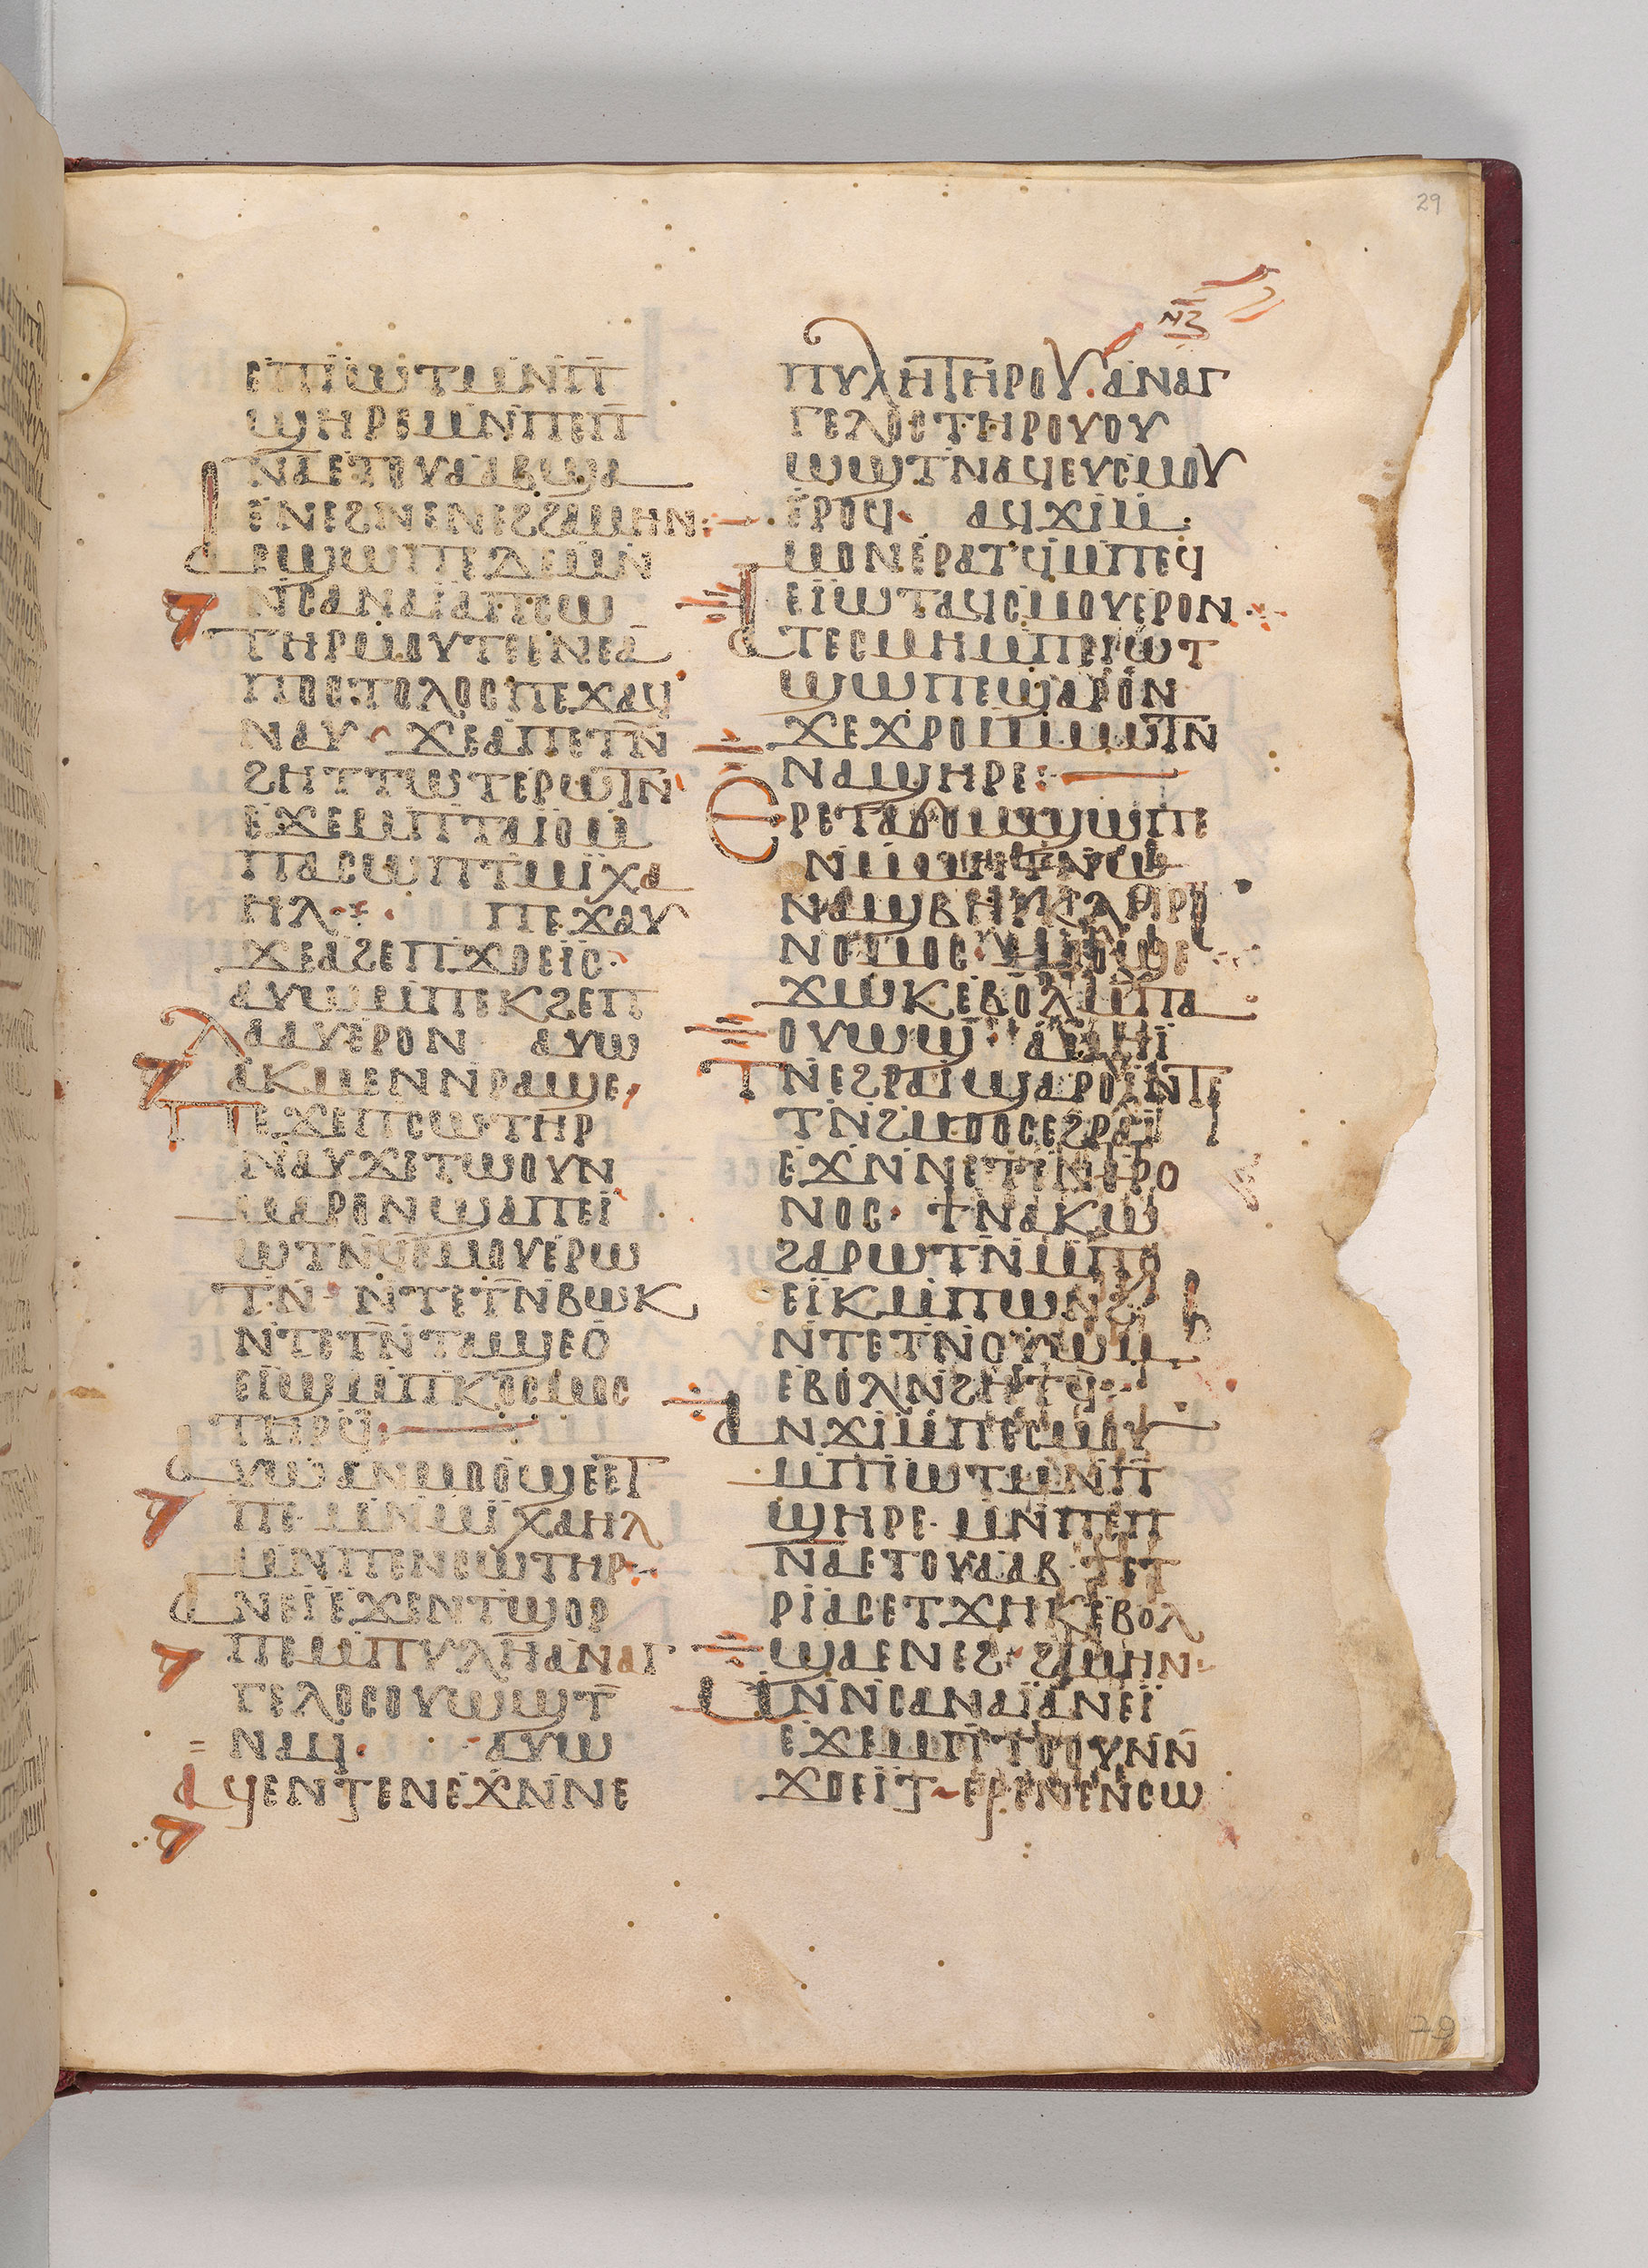 29
ⲛⲍ
ⲉⲡⲓⲱⲧⲙⲛⲡ̄
ϣⲏⲣⲉⲙⲛⲡⲉⲡ̄
ⲛⲁⲉⲧⲟⲩⲁⲁⲃϣⲁ
ⲉⲛⲉϩⲛⲉⲛⲉϩϩⲁⲙⲏⲛ:
ⲁⲥϣⲱⲡⲉⲇⲉⲙⲛ̄
ⲛ̄ⲥⲁⲛⲁⲓ̈ⲁⲡⲥⲱ
ⲧⲏⲣⲙⲟⲩⲧⲉⲉⲛⲉⲁ
ⲡⲟⲥⲧⲟⲗⲟⲥⲡⲉϫⲁϥ
ⲛⲁⲩ· ϫⲉⲁⲡⲉⲧⲛ̄
ϩⲏⲧⲧⲱⲧⲉⲣⲱⲧⲛ
ⲉϫⲉⲙⲡⲧⲁⲓ̈ⲟⲙ
ⲡⲁⲥⲱⲡⲧⲙⲓ̈ⲭⲁ
ⲏⲗ· ⲡⲉϫⲁⲩ
ϫⲉⲁϩⲉⲡϫⲟⲉⲓ̈ⲥ·
ⲁⲩⲱⲙⲡⲉⲕϩⲉⲡ
ⲗⲁⲁⲩⲉⲣⲟⲛ ⲁⲩⲱ
ⲁⲕⲙⲉⲛⲛⲣⲁϣⲉ
ⲡⲉϫⲉⲡⲥⲱⲧⲏⲣ
ⲛⲁⲩϫⲉⲧⲱⲟⲩⲛ
ⲙⲁⲣⲟⲛϣⲁⲡⲉⲓ̈
ⲱⲧⲛϥⲥⲙⲟⲩⲉⲣⲱ
ⲧⲛ· ⲛⲧⲉⲧⲛ̄ⲃⲱⲕ
ⲛⲧⲉⲧⲛ̄ⲧⲁϣⲉⲟ
ⲉⲓ̈ϣⲙⲡⲕⲟⲥⲙⲟⲥ
ⲧⲏⲣϥ:
ⲁⲩⲱⲁⲛⲙⲟⲟϣⲉⲉⲧ
ⲡⲉ ⲙⲛⲙⲓ̈ⲭⲁⲏⲗ
ⲙⲛⲡⲉⲛⲥⲱⲧⲏⲣ·
ⲁⲛⲉⲓ̈ⲉϫⲉⲛⲧϣⲟⲣ
ⲡⲉⲙⲡⲩⲗⲏⲁⲛⲁⲅ
ⲅⲉⲗⲟⲥⲟⲩⲱϣⲧ̄
ⲛⲁϥ· ⲁⲩⲱ
ⲁϥⲉⲛⲧⲉⲛⲉϫⲛⲛⲉ
ⲡⲩⲗⲏⲧⲏⲣⲟⲩ·ⲁⲛⲁⲅ
ⲅⲉⲗⲟⲥⲧⲏⲣⲟⲩⲟⲩ
ⲱϣⲧⲛⲁϥⲉⲩⲥⲙⲟⲩ
ⲉⲣⲟϥ· ⲁϥϫⲓⲙ
ⲙⲟⲛⲉⲣⲁⲧϥⲙⲡⲉϥ
ⲉⲓ̈ⲱⲧⲁϥⲥⲙⲟⲩⲉⲣⲟⲛ·
ⲁⲧⲉⲥⲙⲏⲙⲡⲉⲓⲱⲧ
ϣⲱⲡⲉϣⲁⲣⲟⲛ
ϫⲉϫⲣⲟⲙⲙⲱⲧⲛ
ⲛⲁϣⲏⲣⲉ:
ⲉⲣⲉⲧⲁϭⲟⲙϣⲱⲡⲉ
ⲛⲁϣⲃⲏⲣⲕⲗⲏⲣⲟ
ⲛⲟⲙⲟⲥ
ϫⲱⲕⲉⲃⲟⲗⲙⲡⲁ
ⲟⲩⲱϣ· ⲁⲙⲏⲓ̈
ⲧⲛⲉϩⲣⲁⲓ̈ϣⲁⲣⲟⲓ̈ⲛⲧⲉ
ⲧⲛ̄ϩⲙⲟⲟⲥⲉϩⲣⲁⲓ̈
ⲉϫⲛⲛⲉⲧⲛⲑⲣⲟ
ⲛⲟⲥ· ϯⲛⲁⲕⲱ
ϩⲁⲣⲱⲧⲛⲙⲡⲟ
ⲉⲓ̈ⲕⲙⲡⲱⲛϩ̄
ⲛⲧⲉⲧⲛⲟⲩⲱⲙ
ⲉⲃⲟⲗⲛϩⲏⲧϥ·
ⲁⲛϫⲓⲙⲡⲉⲥⲙⲟⲩ
ⲙⲡⲓⲱⲧⲙⲛⲡ̄
ϣⲏⲣⲉ· ⲙⲛⲡⲉⲡ
ⲛⲁⲉⲧⲟⲩⲁⲁⲃ ⲧⲉⲧ
ⲣⲓ̈ⲁⲥⲉⲧϫⲏⲕⲉⲃⲟⲗ
ϣⲁⲉⲛⲉϩ· ϩⲁⲙⲏⲛ·
ⲙⲛⲛⲥⲁⲛⲁⲓ̈ⲁⲛⲉⲓ̈
ⲉϫⲉⲙⲡⲧⲟⲟⲩⲛⲛ̄
ϫⲟⲉⲓ̈ⲧ· ⲉⲣⲉⲡⲉⲛⲥⲱ
29